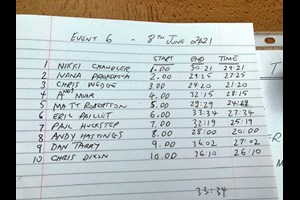 EVENT 6 - 8TH JUNE 2021
START END TIME
1 NIKKI CHANDLER 1.00 30:21 29:21
2 IVANA 2.00 29:25 27:25
3 CHRIS WEDGE 3.00 24:20 21:20
4 MUIR 4.00 32:15 28:15
5 MATT ROBERTSON 5.00 29:29 24:29
6 ERIC PAILLET 6.00 33:34 27:34
7 PAUL HUCKSTEP 7.00 32:19 25:19
8 ANDY HASTINGS 8.00 28:00 20:00
9 DAN TARRY 9.00 36:02 27:02
10 CHRIS DIXON 10.00 36:10 26:10
33:34
T